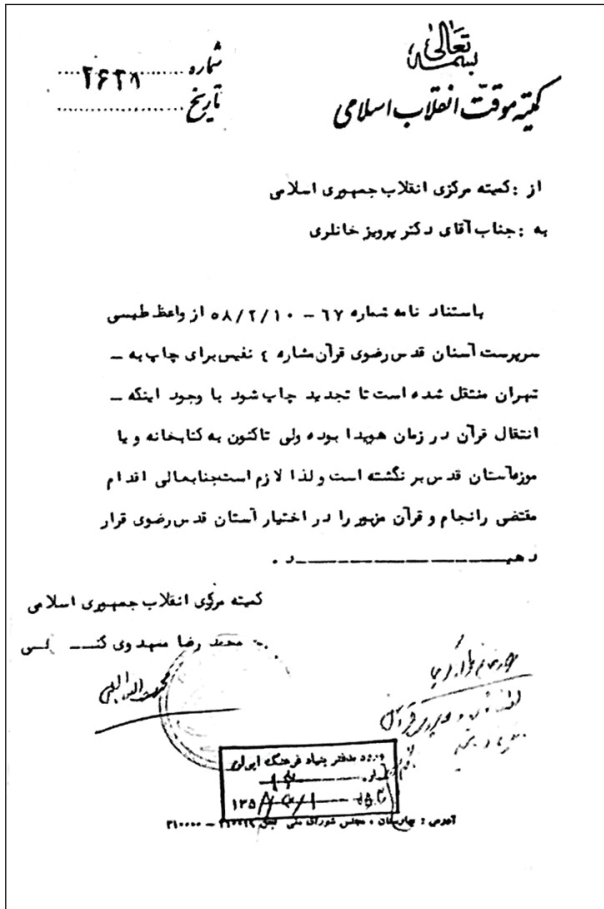 بسمه تعالی
کمیته موقت انقلاب اسلامی
شماره ۲۶۲۸
تاریخ
از : کمیته مرکزی انقلاب جمهوری اسلامی
به : جناب آقای دکتر پرویز خانلری
باستناد نامه شماره ۶۷ – ۵۸/۲/۱۰ از واعظ طبسی
سرپرست آستان قدس رضوی قرآن شماره ٤ نفیس برای چاپ به –
تهران منتقل شده است تا تجدید چاپ شود با وجود اینکه –
انتقال قرآن در زمان هویدا بوده ولی تاکنون به کتابخانه و یا
موزه آستان قدس بر نگشته است و لذا لازم است جنابعالی اقدام
مقتضی را انجام و قرآن مزبور را در اختیار آستان قدس رضوی قرار
دهیـــــــــــــد .
کمیته مرکزی انقلاب جمهوری اسلامی
محمد رضا مهدوی کنـــی
ورود بدفتر بنیاد فرهنگ ایران
آدرس : بهارستان ، مجلس شورای ملی